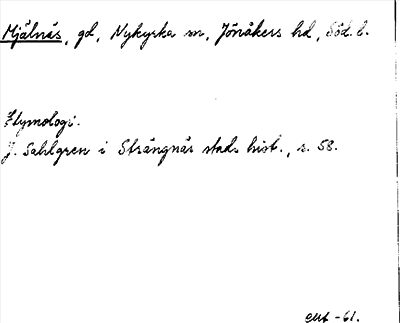 Mjälnäs, gd, Nykyrka sn, Jönåkers hd, Söd. l.
Etymologi.
J. Sahlgren i Strängnäs stads hist., s. 58.
-61.